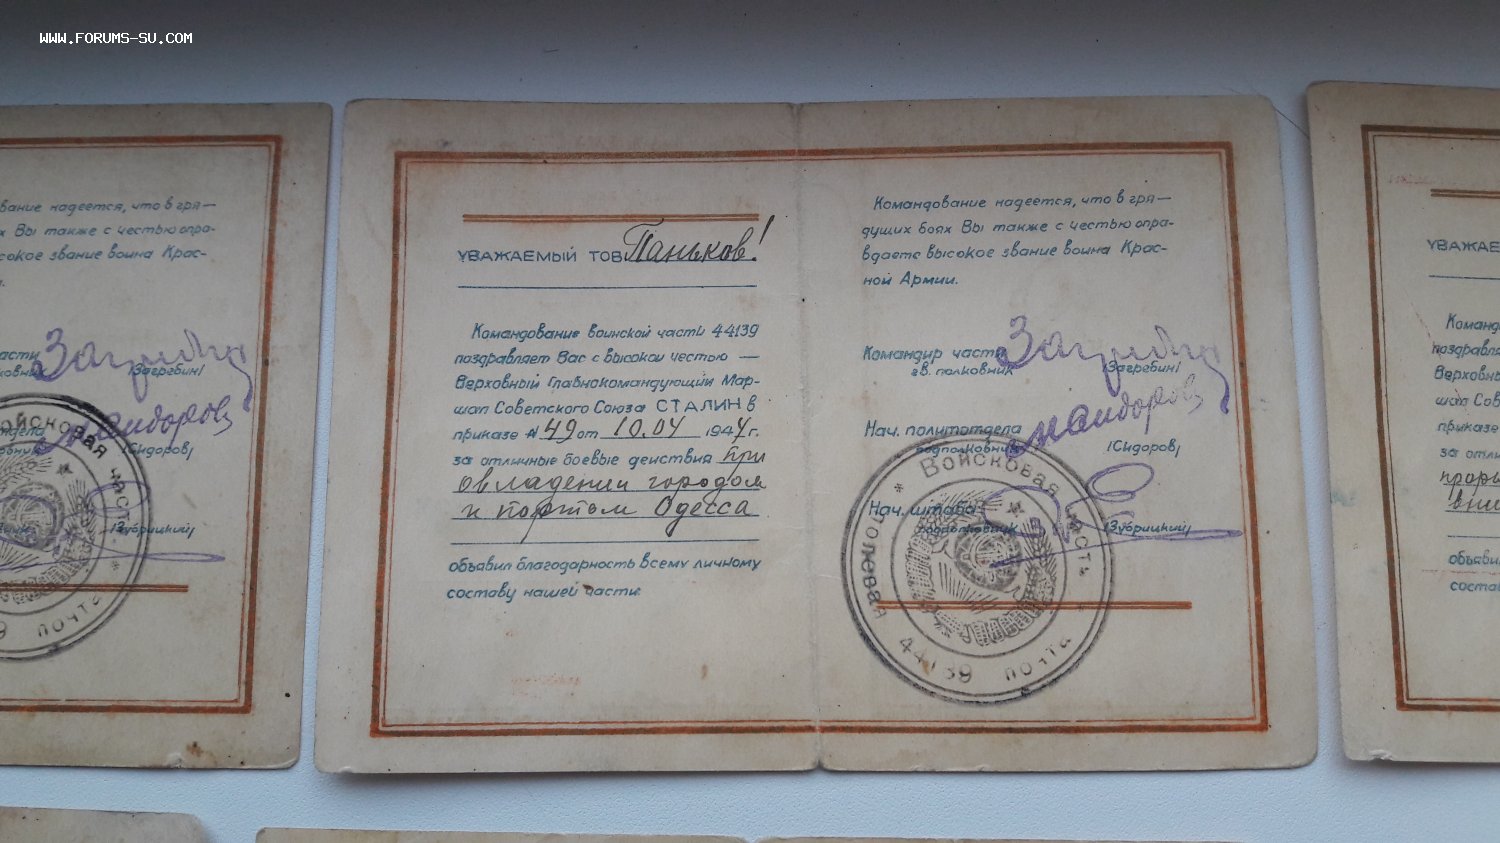 WWW.FORUMS-SU.COM
вание надеется, что в гря—
ях Вы также с честью опра-
сокое звание воина Крас-
асти
/Загребин/
дела
/Сидоров/
/Зубрицкий/
Войсковая часть
почта
УВАЖАЕМЫЙ ТОВ Паньков!
Командование воинской части 44139
поздравляет Вас с высокой честью —
Верховный Главнокомандующий Мар-
шал Советского Союза СТАЛИН в
приказе № 49 от 10.04 1944 г.
за отличные боевые действия при
овладении городом
и портом Одесса
объявил благодарность всему личному
составу нашей части.
Командование надеется, что в гря—
дущих боях Вы также с честью опра-
вдаете высокое звание воина Крас-
ной Армии.
Командир части
гв. полковник /Загребин/
Нач. политотдела
подполковник /Сидоров/
Нач. штаба
подполковник /Зубрицкий/
Войсковая часть
полевая почта 44139
УВАЖАЕ
Команд
поздравля
Верховны
шал Сов
приказе
за отли
объявил
составу